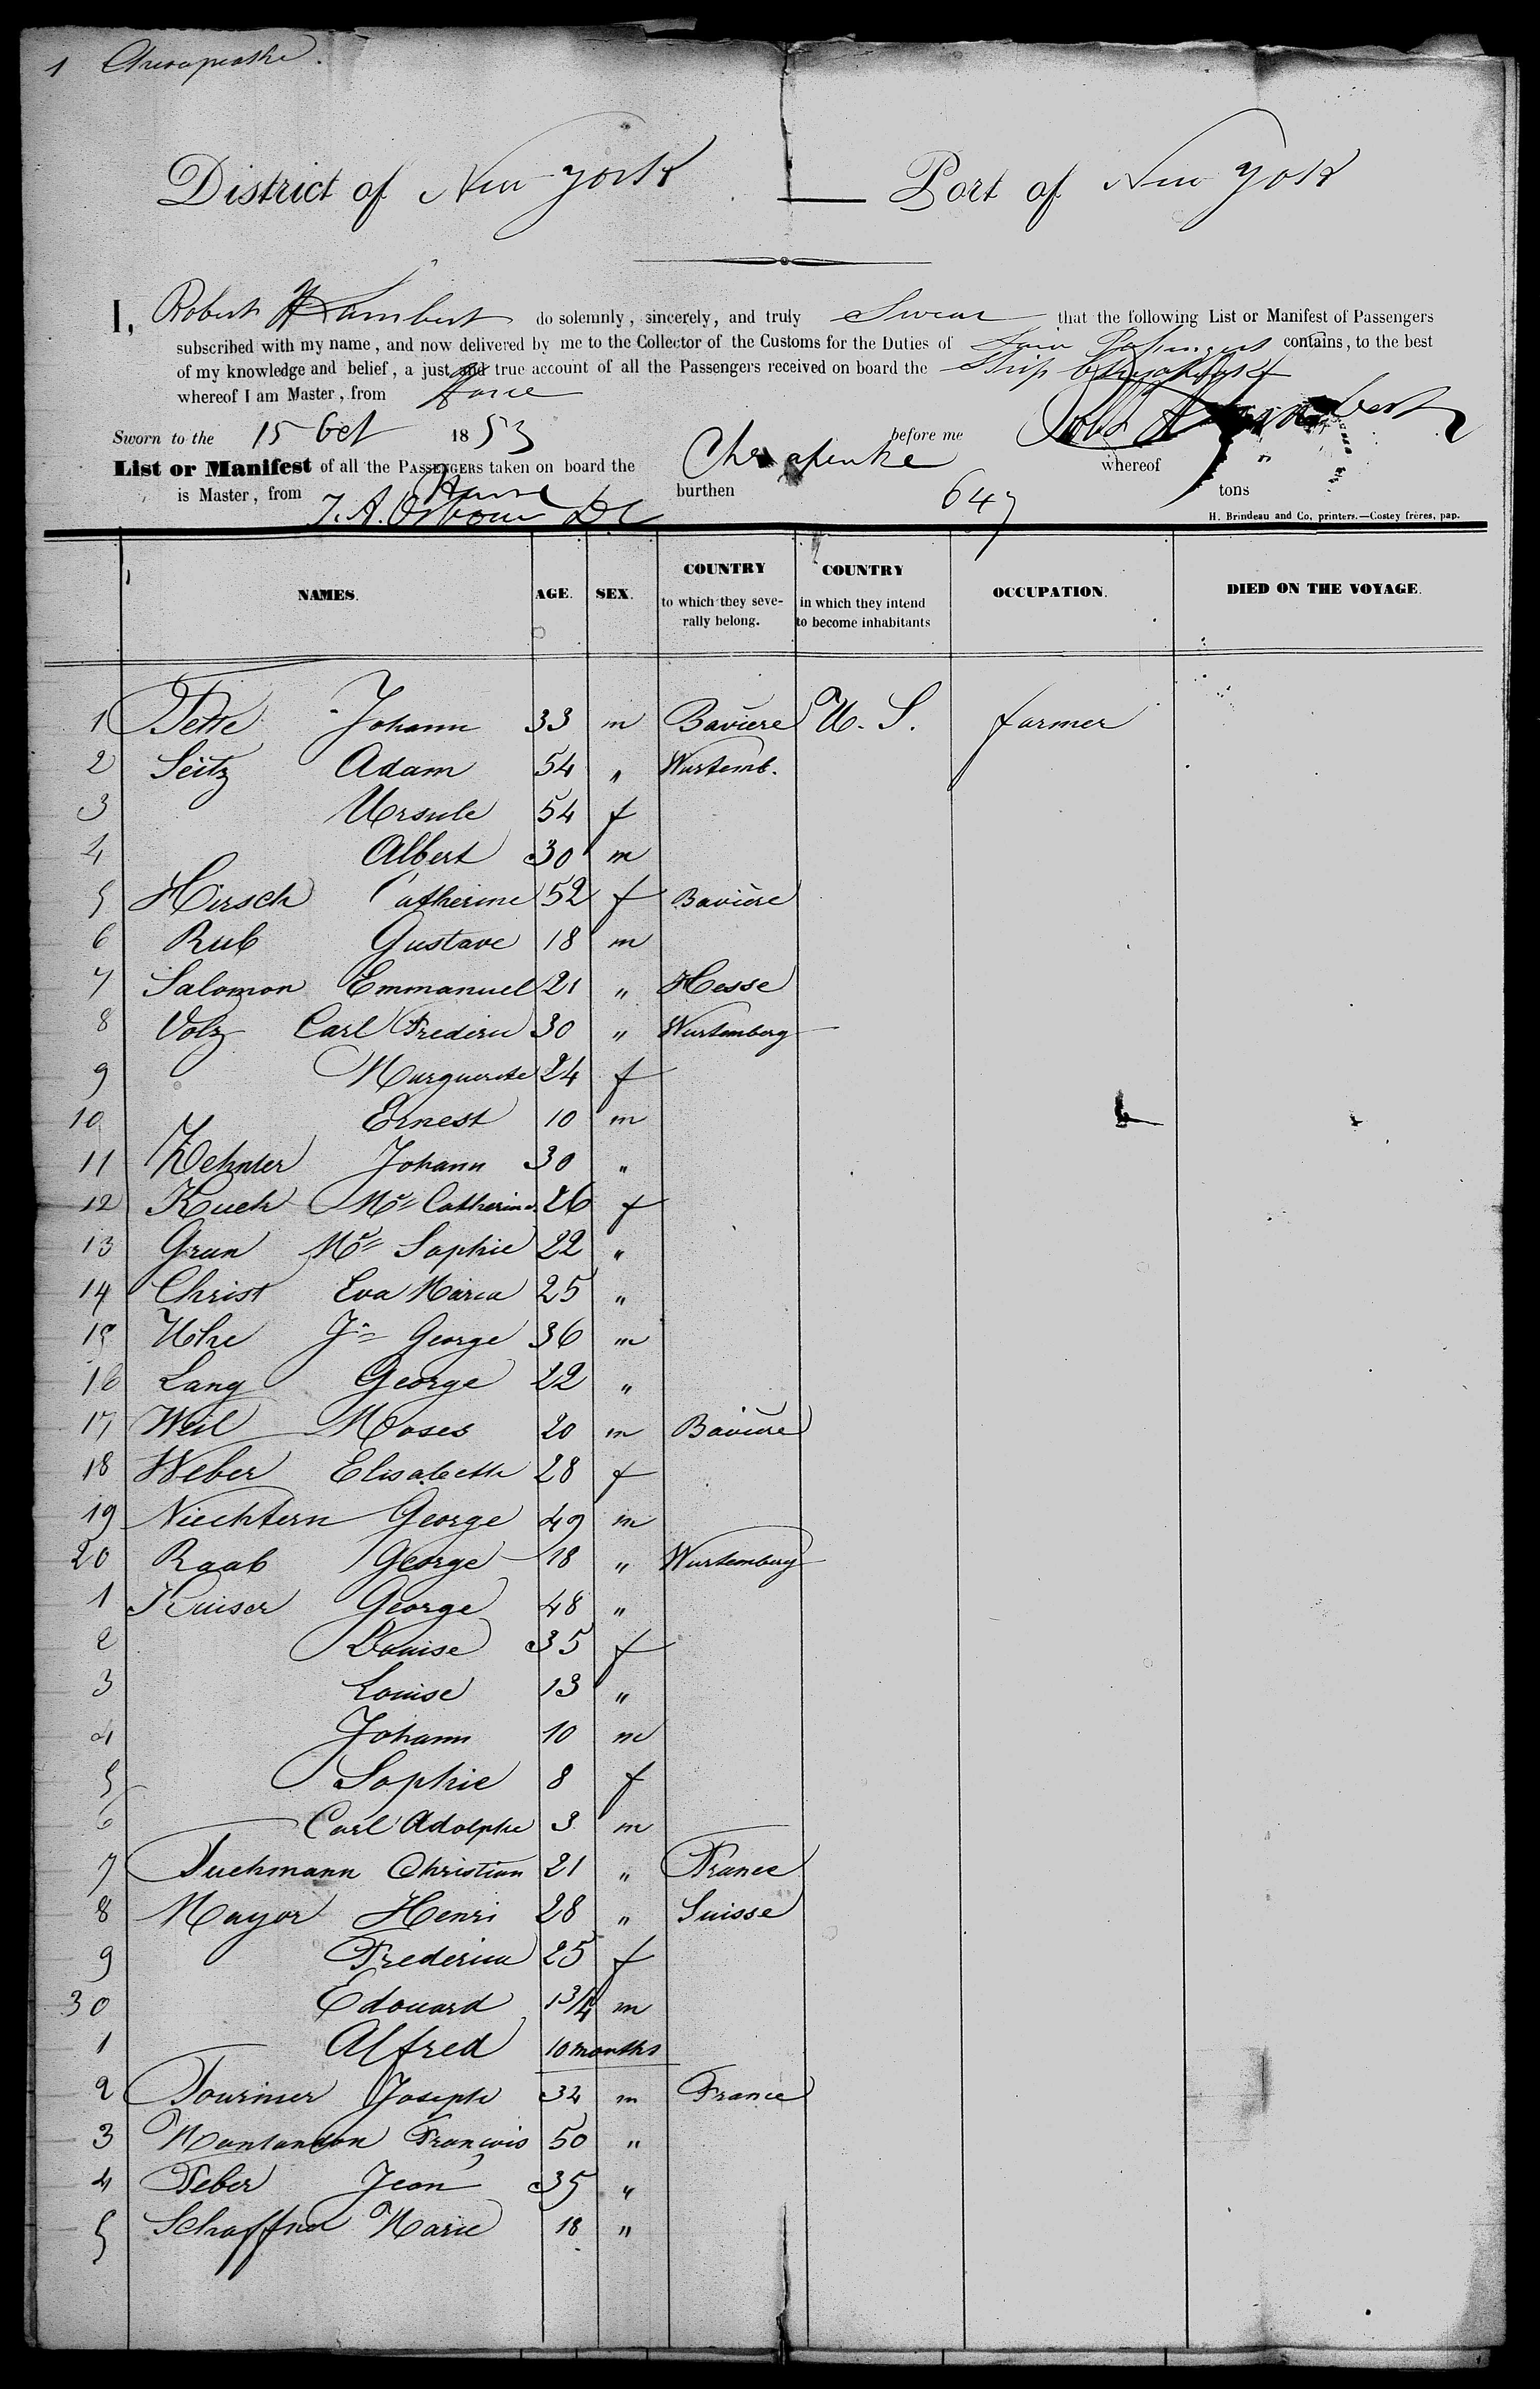 1 Chesapeake.
District of New York — Port of New York
I, Robert W Lambert do solemnly, sincerely, and truly Swear that the following List or Manifest of Passengers
subscribed with my name, and now delivered by me to the Collector of the Customs for the Duties of contains, to the best
of my knowledge and belief, a just and true account of all the Passengers received on board the Ship Chesapeake
whereof I am Master, from Havre
Sworn to the 15 Oct 1853 before me
List or Manifest of all the PASSENGERS taken on board the Chesapeake whereof
is Master, from Havre burthen 647 tons
J. A. Osborn DC
H. Brindeau and Co, printers.—Costey frères, pap.
NAMES. AGE. SEX. COUNTRY to which they severally belong. COUNTRY in which they intend to become inhabitants OCCUPATION. DIED ON THE VOYAGE.
1 Johann 33 m Baviere U. S. farmer
2 Seitz Adam 54 " Wurtemb.
3 Ursule 54 f
4 Albert 30 m
5 Hirsch Catherine 52 f Bavière
6 Rub Gustave 18 m
7 Salomon Emmanuel 21 " Hesse
8 Volz Carl Frederic 30 " Wurtemberg
9 Marguerite 24 f
10 Ernest 10 m
11 Zehnter Johann 30 "
12 Kuch Mie Catherine 26 f
13 Grun Mie Sophie 22 "
14 Christ Eva Maria 25 "
15 Jn George 36 m
16 Lang George 22 "
17 Weil Moses 20 m Bavière
18 Weber Elisabeth 28 f
19 Niechtern George 49 m
20 Raab George 18 " Wurtemberg
1 Kaiser George 48 "
2 Louise 35 f
3 Louise 13 "
4 Johann 10 m
5 Sophie 8 f
6 Carl Adolphe 3 m
7 Tuchmann Christian 21 " France
8 Mayor Henri 28 " Suisse
9 Frederica 25 f
30 Edouard 1 3/4 m
1 Alfred 10 months
2 Fournier Joseph 32 m France
3 Montandon François 50 "
4 Feber Jean 35 "
5 Schaffner Marie 18 "